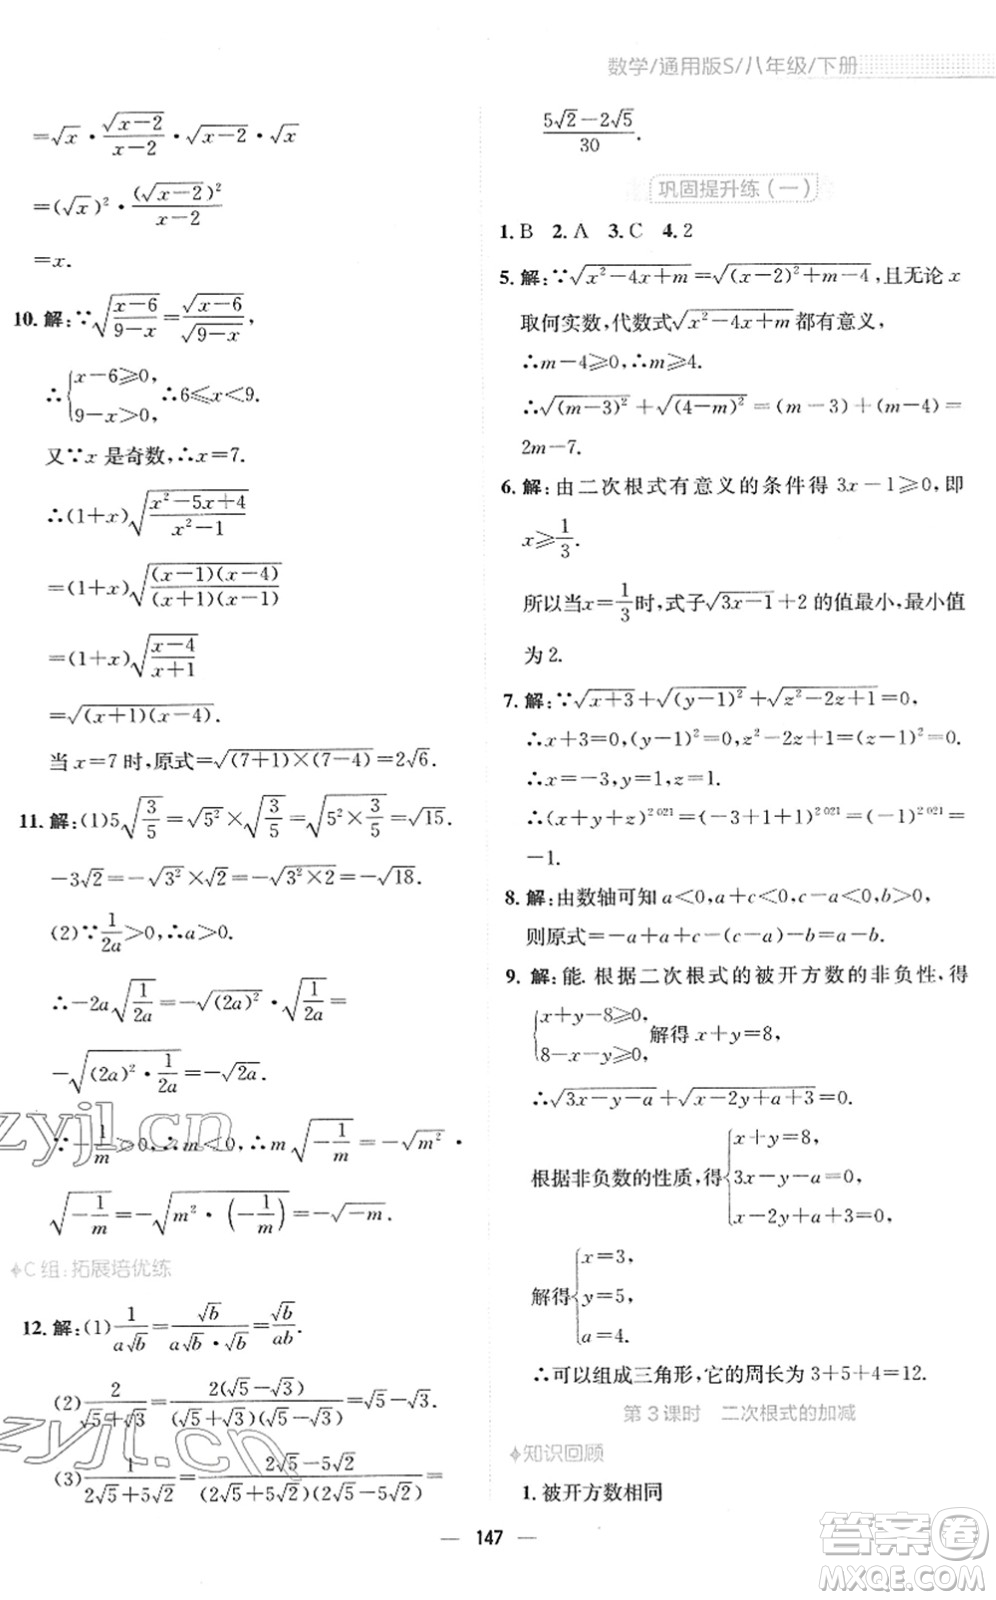 数学/通用版S/八年级/下册
=√x·√(x-2)/(x-2)·√(x-2)·√x
=(√x)²·(√(x-2))²/(x-2)
=x.
10. 解:∵√((x-6)/(9-x))=√(x-6)/√(9-x),
∴{x-6≥0, 9-x>0, ∴6≤x<9.
又∵x是奇数,∴x=7.
∴(1+x)√((x²-5x+4)/(x²-1))
=(1+x)√((x-1)(x-4)/((x+1)(x-1)))
=(1+x)√((x-4)/(x+1))
=√((x+1)(x-4)).
当x=7时,原式=√((7+1)×(7-4))=2√6.
11. 解:(1)5√(3/5)=√5²×√(3/5)=√(5²×3/5)=√15.
-3√2=-√3²×√2=-√(3²×2)=-√18.
(2)∵1/(2a)>0,∴a>0.
∴-2a√(1/(2a))=-√((2a)²)·√(1/(2a))=
-√((2a)²·1/(2a))=-√(2a).
∵-1/m>0,∴m<0,∴m√(-1/m)=-√m²·
√(-1/m)=-√(m²·(-1/m))=-√(-m).
C组:拓展培优练
12. 解:(1)1/(a√b)=√b/(a√b·√b)=√b/(ab).
(2)2/(√5+√3)=2(√5-√3)/((√5+√3)(√5-√3))=√5-√3.
(3)1/(2√5+5√2)=(2√5-5√2)/((2√5+5√2)(2√5-5√2))=
(5√2-2√5)/30.
巩固提升练(一)
1. B 2. A 3. C 4. 2
5. 解:∵√(x²-4x+m)=√((x-2)²+m-4),且无论x
取何实数,代数式√(x²-4x+m)都有意义,
∴m-4≥0,∴m≥4.
∴√((m-3)²)+√((4-m)²)=(m-3)+(m-4)=
2m-7.
6. 解:由二次根式有意义的条件得3x-1≥0,即
x≥1/3.
所以当x=1/3时,式子√(3x-1)+2的值最小,最小值
为2.
7. 解:∵√(x+3)+√((y-1)²)+√(z²-2z+1)=0,
∴x+3=0,(y-1)²=0,z²-2z+1=(z-1)²=0.
∴x=-3,y=1,z=1.
∴(x+y+z)²⁰²¹=(-3+1+1)²⁰²¹=(-1)²⁰²¹=
-1.
8. 解:由数轴可知a<0,a+c<0,c-a<0,b>0,
则原式=-a+a+c-(c-a)-b=a-b.
9. 解:能.根据二次根式的被开方数的非负性,得
{x+y-8≥0, 8-x-y≥0, 解得x+y=8,
∴√(3x-y-a)+√(x-2y+a+3)=0.
根据非负数的性质,得{x+y=8, 3x-y-a=0, x-2y+a+3=0,
解得{x=3, y=5, a=4.
∴可以组成三角形,它的周长为3+5+4=12.
第3课时 二次根式的加减
知识回顾
1. 被开方数相同
— 147 —
zyjl.cn
zyjl.cn
答案卷
MXQE.COM